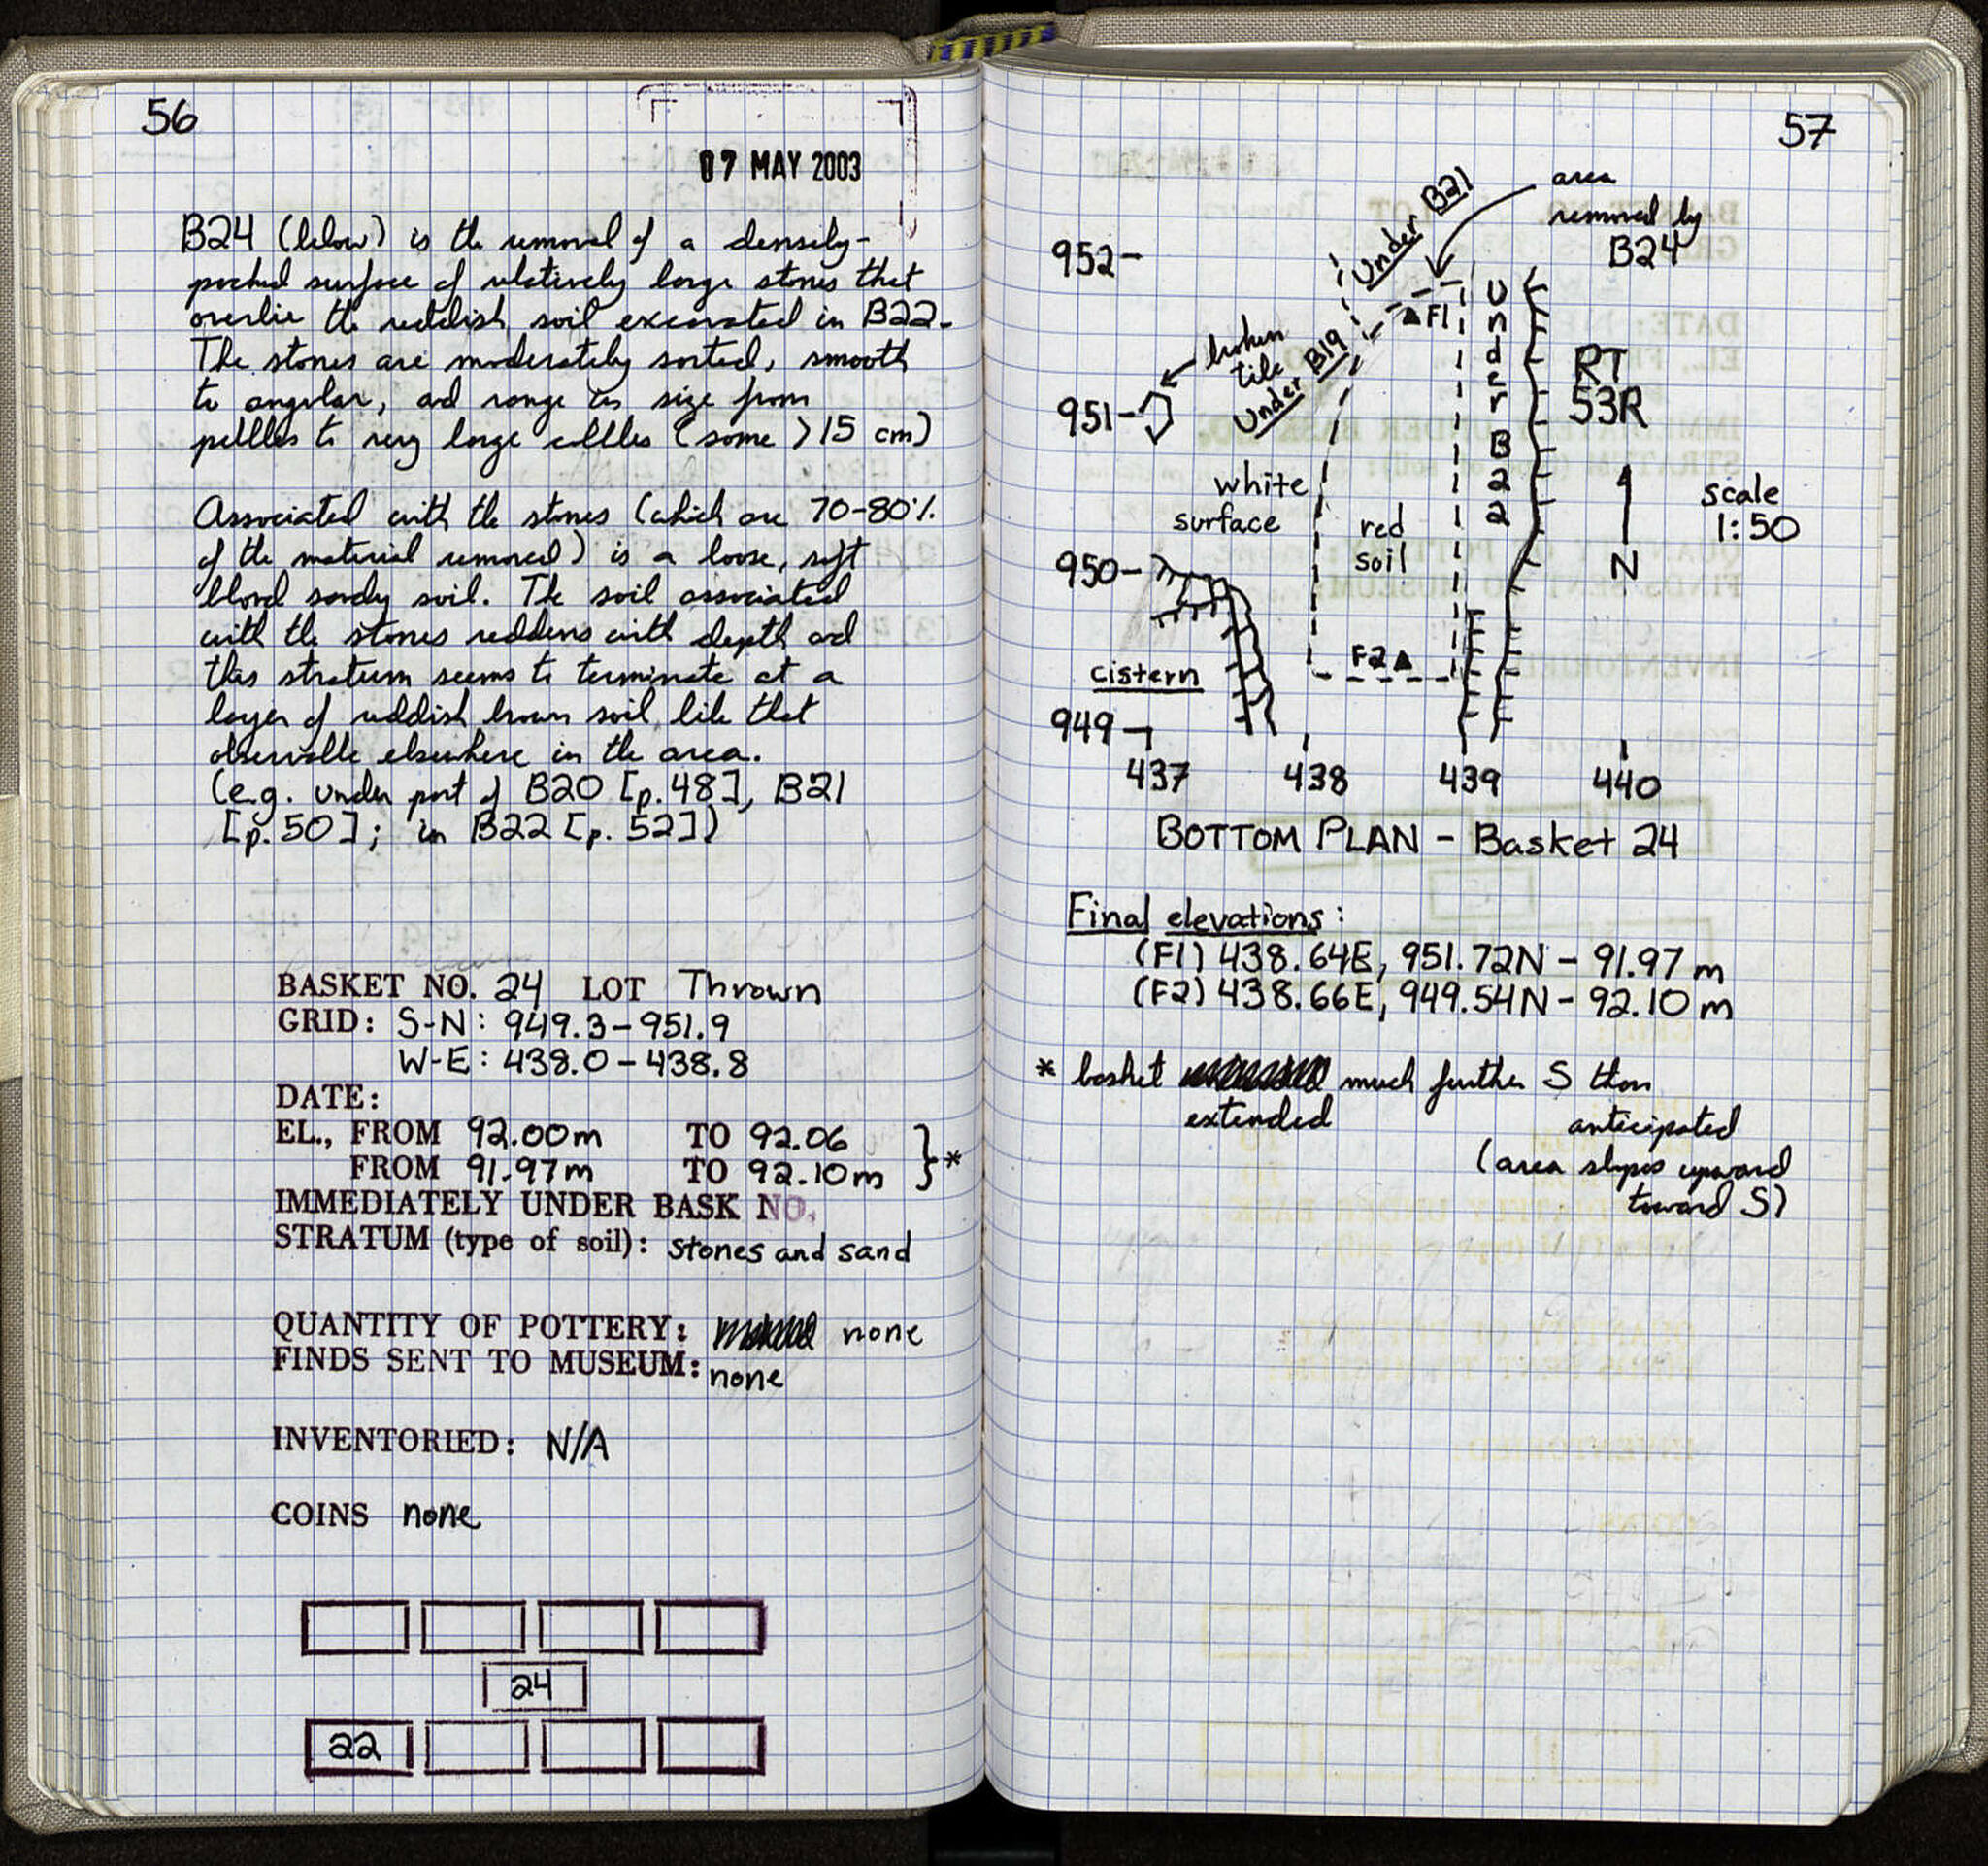 56
07 MAY 2003
B24 (below) is the removal of a densely-
packed surface of relatively large stones that
overlie the reddish soil excavated in B22.
The stones are moderately sorted, smooth
to angular, and range in size from
pebbles to very large cobbles (some >15 cm)
Associated with the stones (which are 70-80%
of the material removed) is a loose, soft
blond sandy soil. The soil associated
with the stones reddens with depth and
this stratum seems to terminate at a
layer of reddish brown soil like that
observable elsewhere in the area.
(e.g. under part of B20 [p.48], B21
[p.50]; in B22 [p. 52])
BASKET NO. 24 LOT Thrown
GRID: S-N: 949.3-951.9
W-E: 438.0-438.8
DATE:
EL., FROM 92.00m TO 92.06
FROM 91.97m TO 92.10m } *
IMMEDIATELY UNDER BASK NO.
STRATUM (type of soil): stones and sand
QUANTITY OF POTTERY: none
FINDS SENT TO MUSEUM: none
INVENTORIED: N/A
COINS none
24
22
57
area
removed by
B24
Under B21
952-
F1
broken
tile
Under B19
Under B22
RT
53R
951-
white
surface
red
soil
scale
1:50
N
950-
F2
cistern
949
437 438 439 440
BOTTOM PLAN - Basket 24
Final elevations:
(F1) 438.64E, 951.72N - 91.97 m
(F2) 438.66E, 949.54N - 92.10 m
* basket much further S than
extended anticipated
(area slopes upward
toward S)